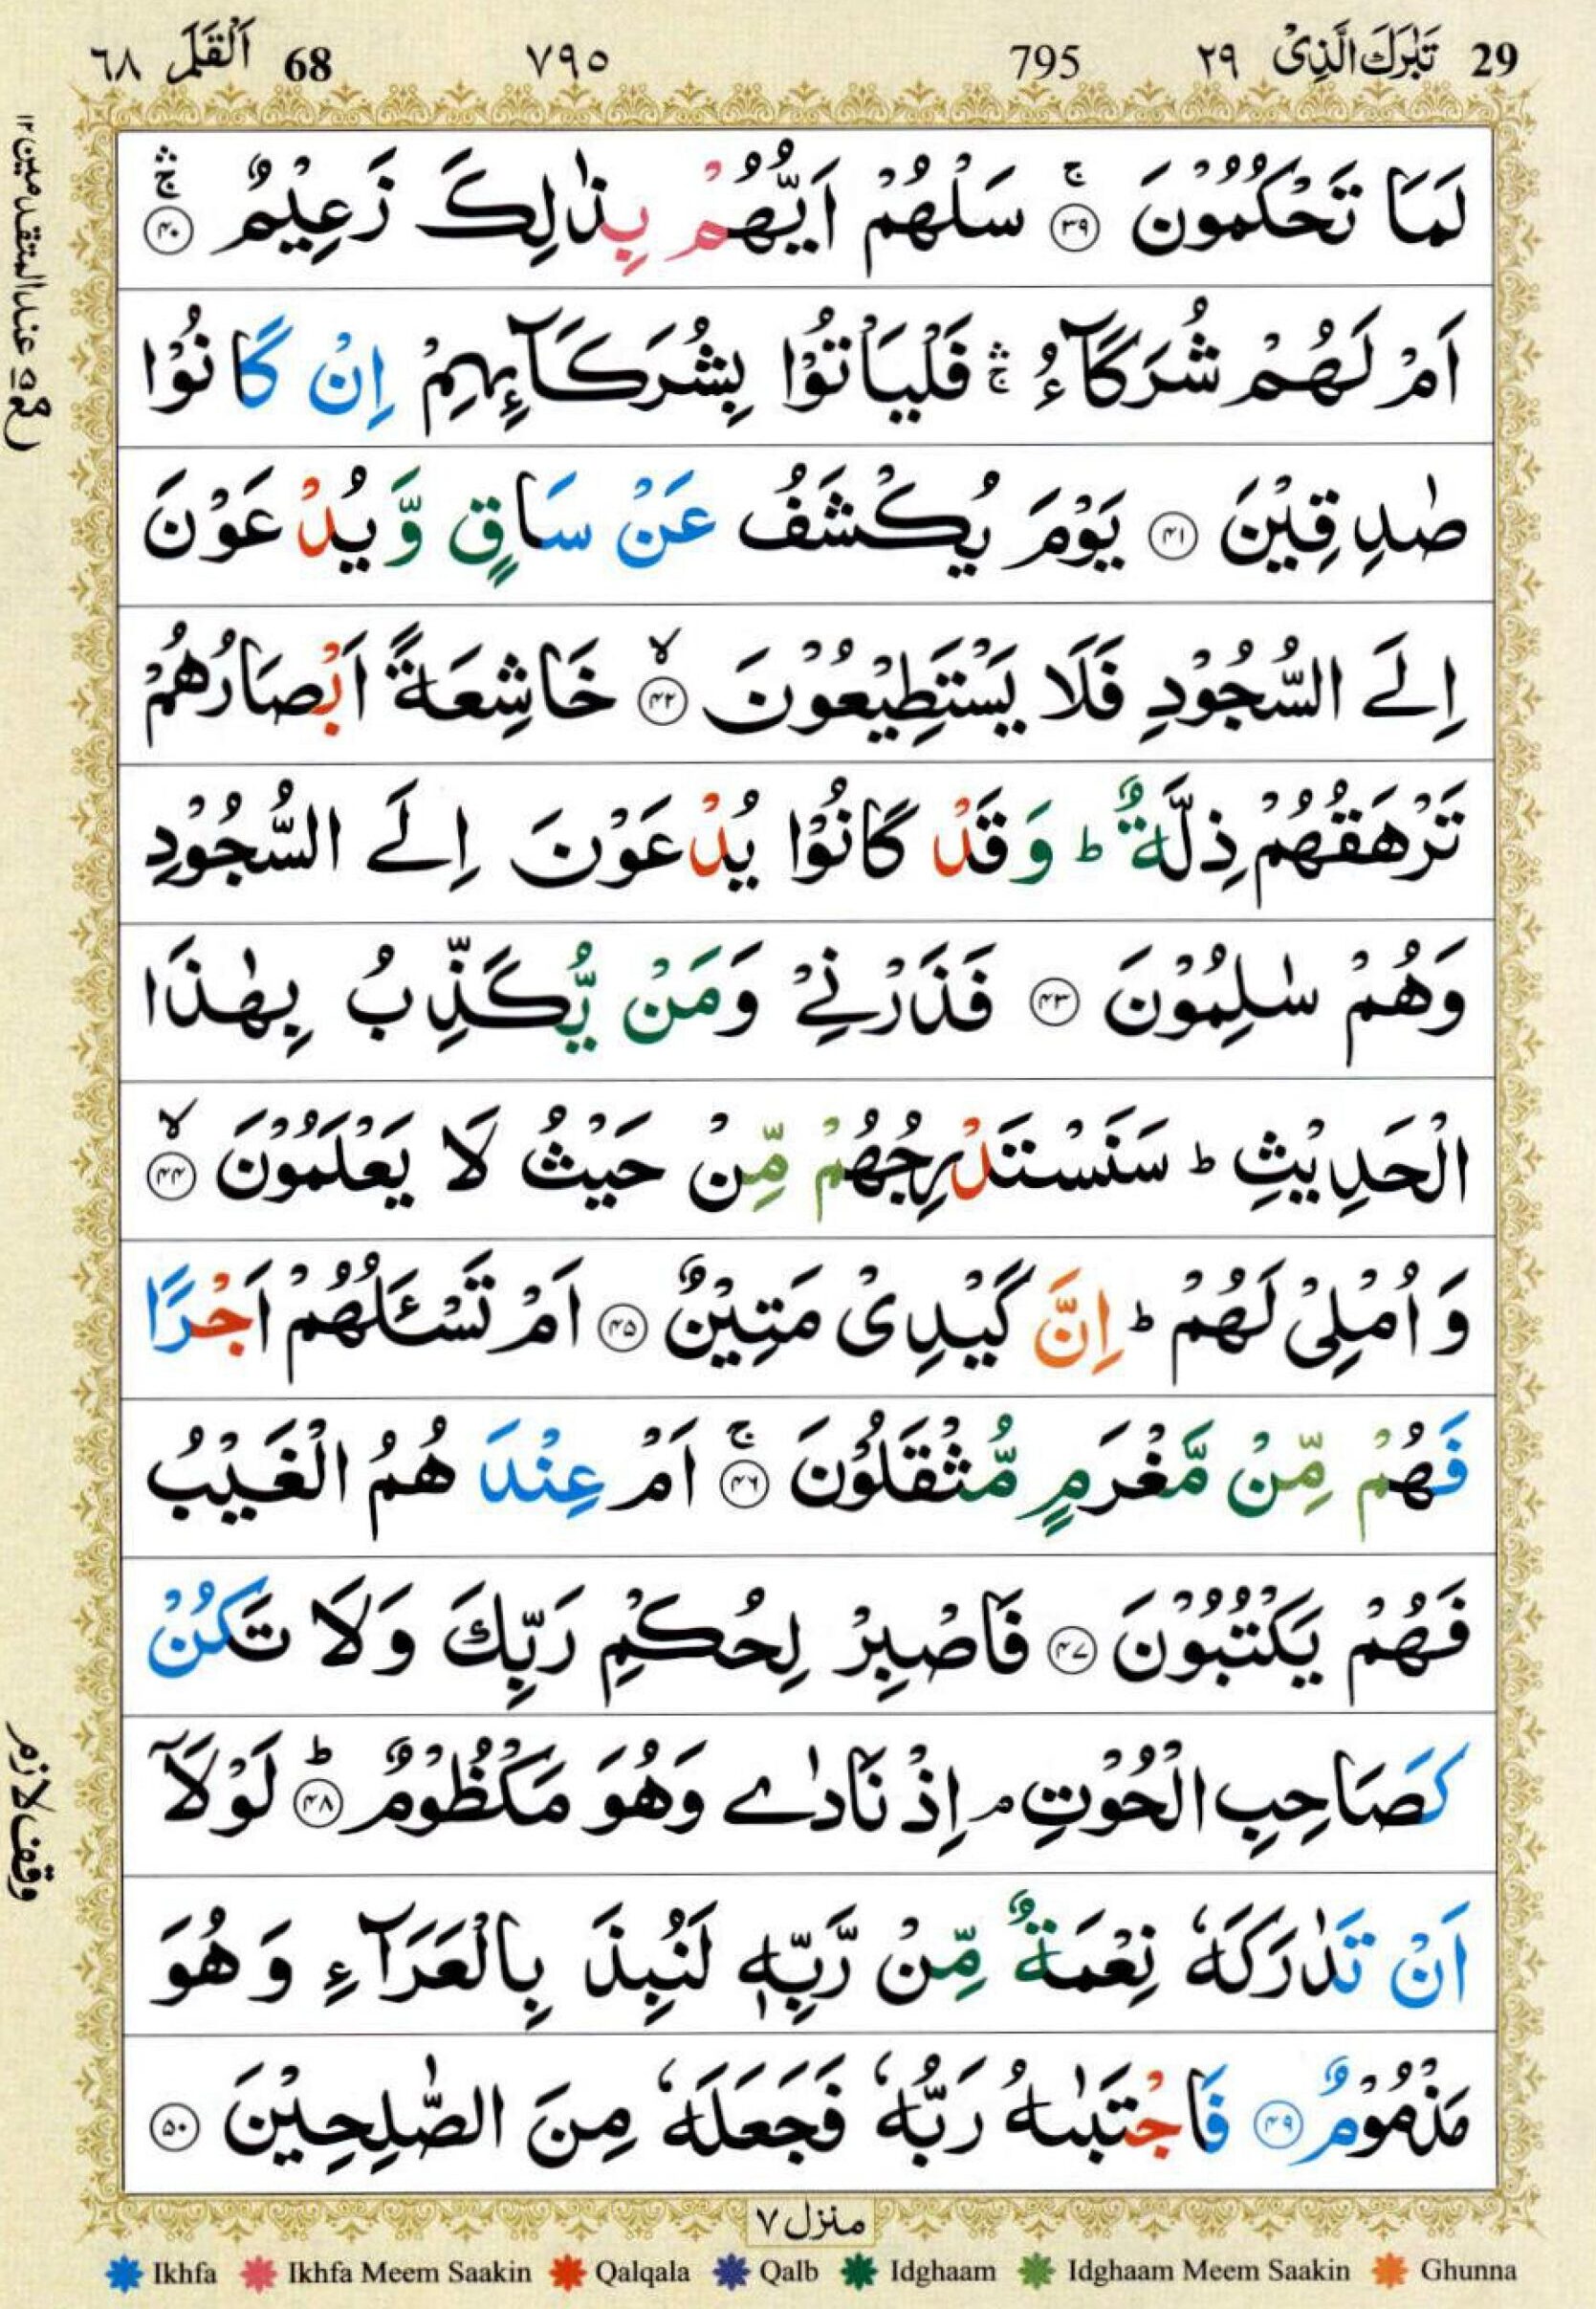 29 تَبٰرَكَ الَّذِىْ ٢٩ 795 ٧٩٥ 68 اَلْقَلَمُ ٦٨
لَمَا تَحْكُمُوْنَ ۚ ﴿٣٩﴾ سَلْهُمْ اَيُّهُمْ بِذٰلِكَ زَعِيْمٌ ۛۚ ﴿٤٠﴾
اَمْ لَهُمْ شُرَكَآءُ ۛۚ فَلْيَاْتُوْا بِشُرَكَآئِهِمْ اِنْ كَانُوْا
صٰدِقِيْنَ ﴿٤١﴾ يَوْمَ يُكْشَفُ عَنْ سَاقٍ وَّيُدْعَوْنَ
اِلَى السُّجُوْدِ فَلَا يَسْتَطِيْعُوْنَ ۙ ﴿٤٢﴾ خَاشِعَةً اَبْصَارُهُمْ
تَرْهَقُهُمْ ذِلَّةٌ ؕ وَقَدْ كَانُوْا يُدْعَوْنَ اِلَى السُّجُوْدِ
وَهُمْ سٰلِمُوْنَ ﴿٤٣﴾ فَذَرْنِىْ وَمَنْ يُّكَذِّبُ بِهٰذَا
الْحَدِيْثِ ؕ سَنَسْتَدْرِجُهُمْ مِّنْ حَيْثُ لَا يَعْلَمُوْنَ ۙ ﴿٤٤﴾
وَاُمْلِىْ لَهُمْ ؕ اِنَّ كَيْدِىْ مَتِيْنٌ ﴿٤٥﴾ اَمْ تَسْـَٔلُهُمْ اَجْرًا
فَهُمْ مِّنْ مَّغْرَمٍ مُّثْقَلُوْنَ ۚ ﴿٤٦﴾ اَمْ عِنْدَهُمُ الْغَيْبُ
فَهُمْ يَكْتُبُوْنَ ﴿٤٧﴾ فَاصْبِرْ لِحُكْمِ رَبِّكَ وَلَا تَكُنْ
كَصَاحِبِ الْحُوْتِ ۘ اِذْ نَادٰى وَهُوَ مَكْظُوْمٌ ؕ ﴿٤٨﴾ لَوْلَآ
اَنْ تَدٰرَكَهٗ نِعْمَةٌ مِّنْ رَّبِّهٖ لَنُبِذَ بِالْعَرَآءِ وَهُوَ
مَذْمُوْمٌ ﴿٤٩﴾ فَاجْتَبٰىهُ رَبُّهٗ فَجَعَلَهٗ مِنَ الصّٰلِحِيْنَ ﴿٥٠﴾
منزل ٧
Ikhfa Ikhfa Meem Saakin Qalqala Qalb Idghaam Idghaam Meem Saakin Ghunna
وقف لازم